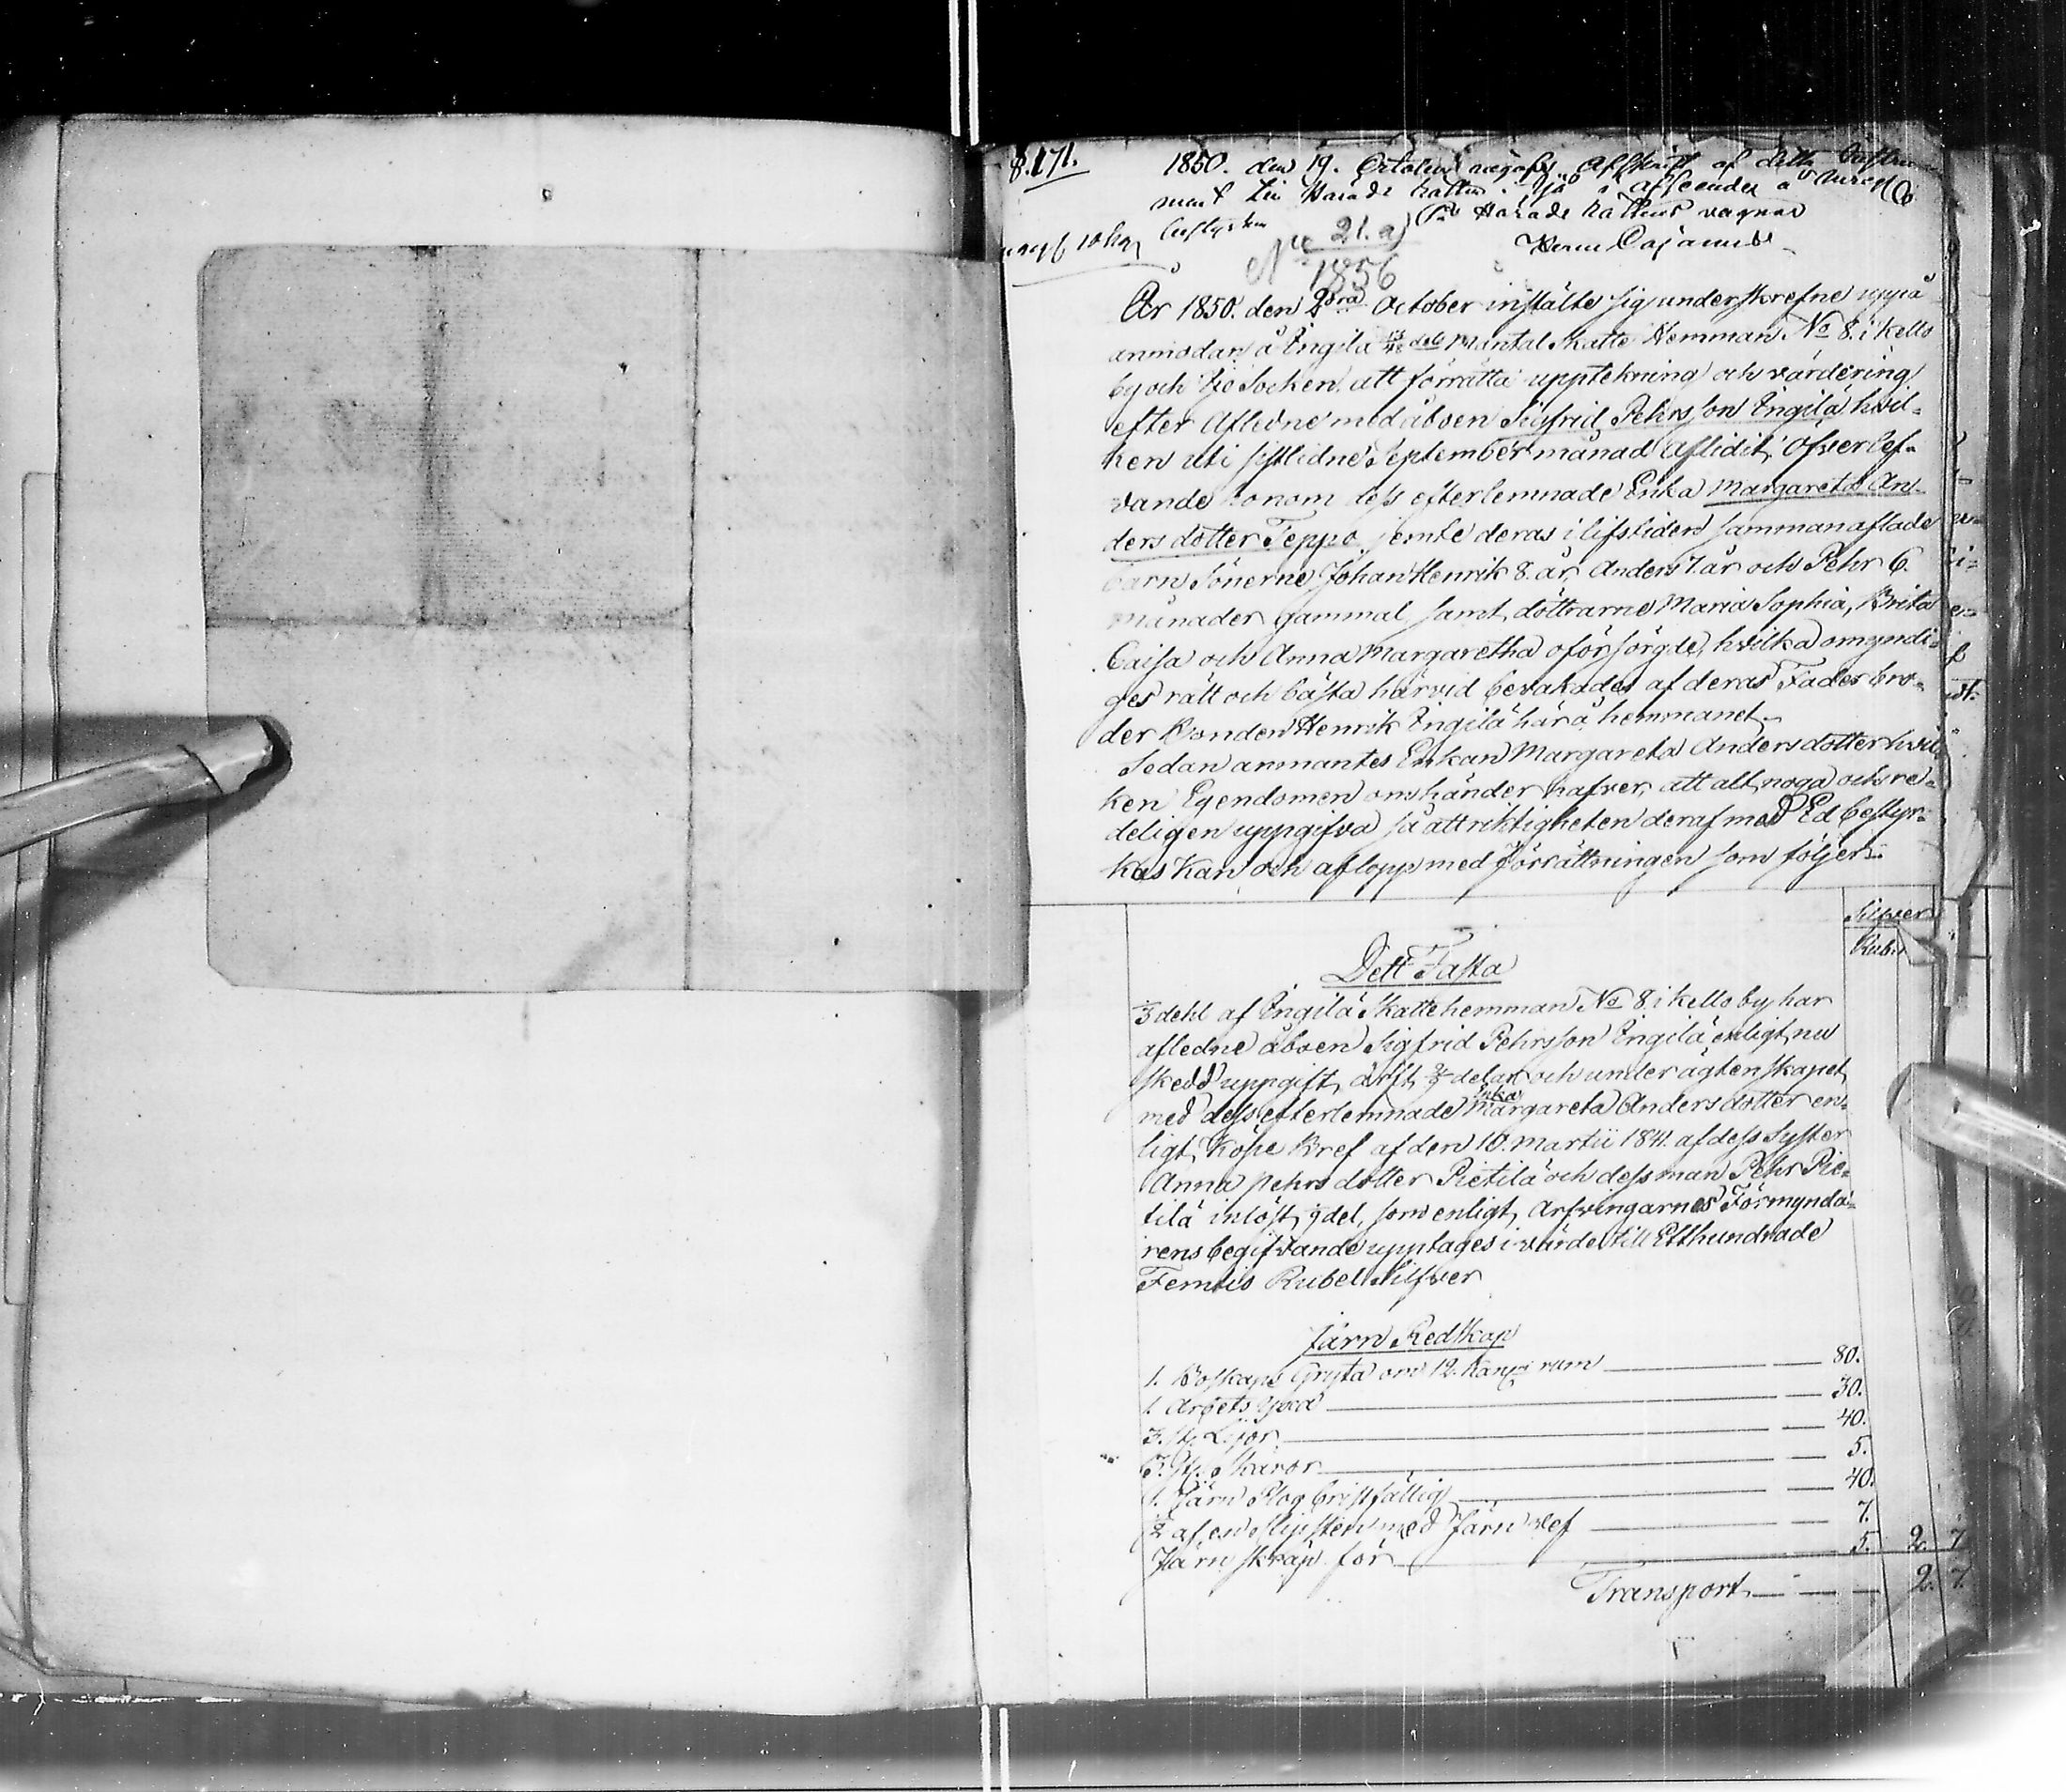 §.171.
1850. den 19. October afskrift af detta
ment till Härads Rätten i Ijo i afseende å
På Härads Rättens vagnar
Herm Cajanus
No 21. a)
1856
År 1850. den 2dra October instälte sig underskrefne uppå
anmodan å Engilä mantal Skatte Hemman No 8. i kello
by och Ijo Socken, att förrätta upptekning och värdering
efter Aflidne med åboen Sigfrid Pehrsson Engilä hvil-
ken uti sistlidne September månad aflidit, Öfverlef-
vande honom dess efterlemnade Enka Margareta An-
ders dotter Teppo jemte deras i lifstiden samman aflade
barn Sönerne Johan Henrik 8. år, Anders 7. år och Pehr 6.
månader gammal samt döttrarne Maria Sophia, Brita
Caisa och Anna Margaretha oförsörgde, hvilka omyndi-
ges rätt och bästa härvid bevakades af deras Faders bro-
der Bonden Henrik Engilä här å hemmanet.
Sedan anmantes Enkan Margareta Anders dotter hvil
ken Egendomen om händer hafver, att alt noga och re-
deligen uppgifva så att riktigheten deraf med Ed bestyr-
kas kan och aflopp med Förrättningen som följer:
Silfver
Rub.
Dett Fasta
dehl af Engilä Skattehemman No 8. i kello by har
afledne åboen Sigfrid Pehrsson Engilä, enligt nu
skedd uppgift, ärft delar och under ägtenskapet
med dess efterlemnade Enka Margareta Anders dotter en-
ligt Köpe Bref af den 10. Martii 1841. af dess Syster
Anna pehrs dotter Pietilä och dess man Pehr Pie-
tilä inlöst del, som enligt Arfvingarnes Förmynda-
rens begifvande upptages i värde till Etthundrade
Femtio Rubel Silfver
Järn Redskap
1. Boskaps Gryta om 12. kann rum 80.
1. Arbets yxa 30.
3. st. Lijor 40.
3. st. Skäror 5.
1. Järn Plog bristfällig 40.
1/2 af en Slipsten med Järn vef 7.
Järn skräp för 5. 2. 7
Transport 2. 7.